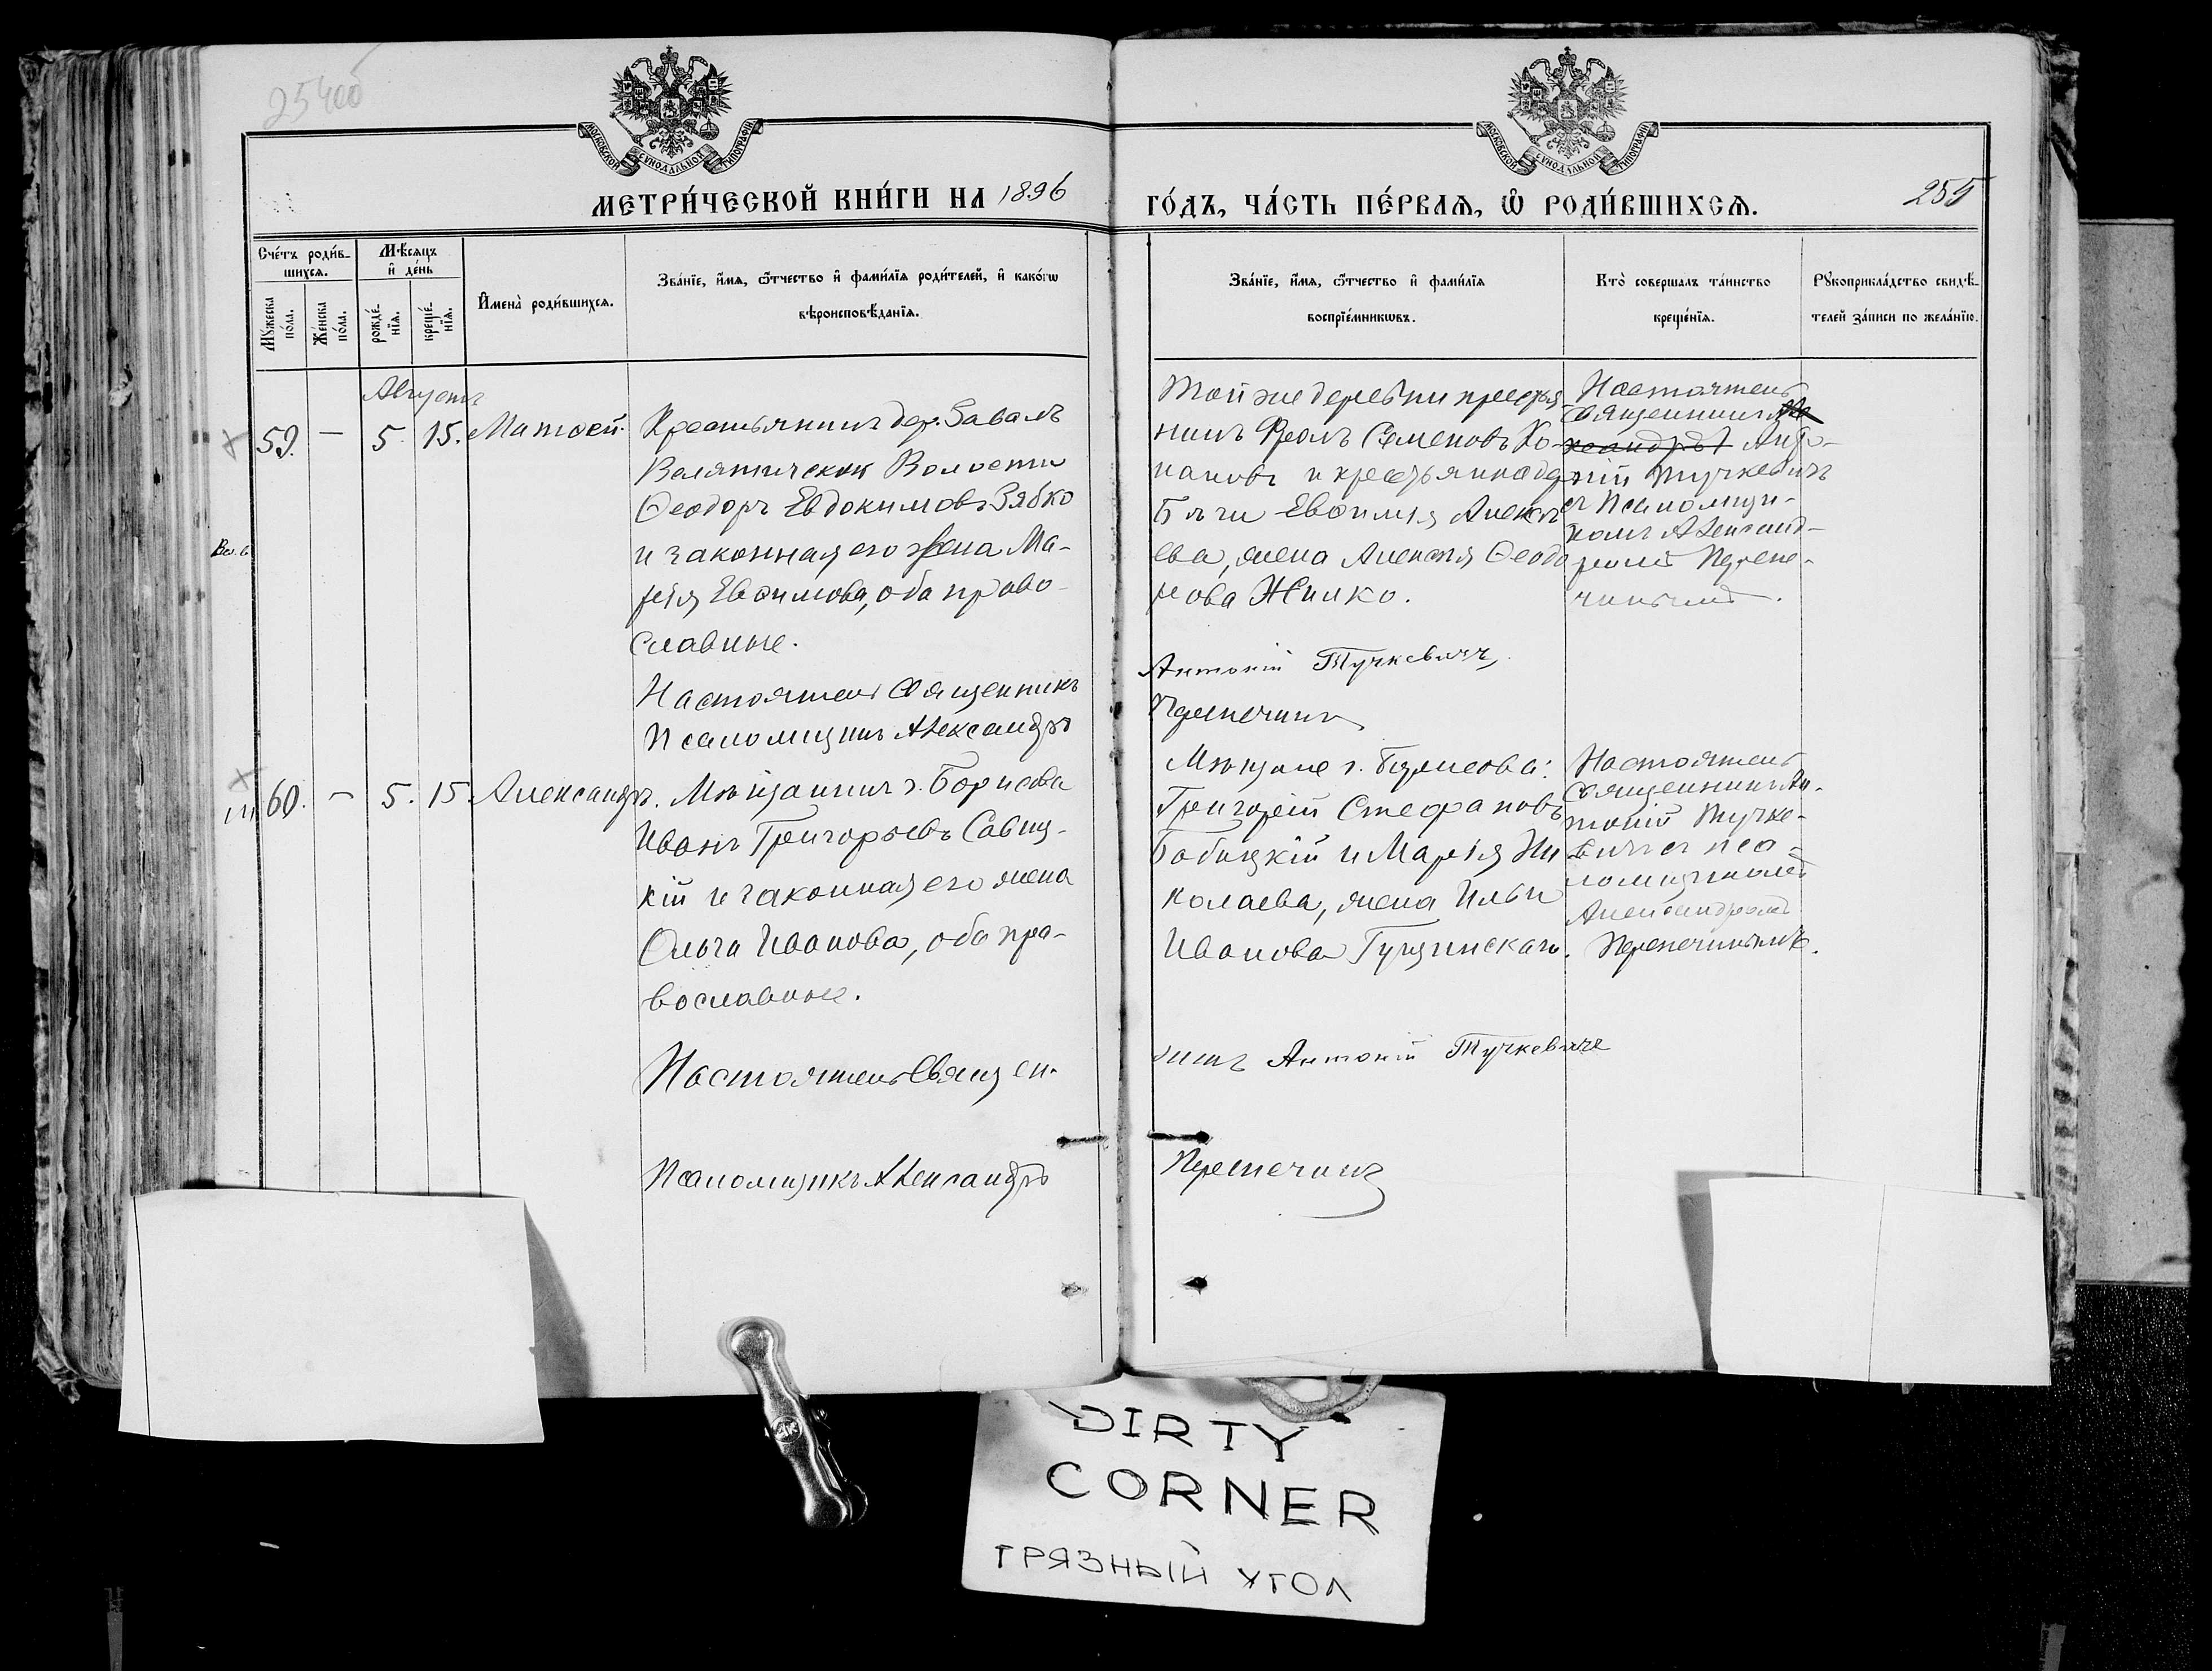 254об
МОСКОВСКОЙ СѴНОДАЛЬНОЙ ТИПОГРАФІИ
МОСКОВСКОЙ СѴНОДАЛЬНОЙ ТИПОГРАФІИ
МЕТРИ́ЧЕСКОЙ КНИ́ГИ НА 1896
ГО́ДЪ, ЧА́СТЬ ПЕ́РВАЯ, Ѡ҆ РОДИ́ВШИХСѦ.
255
Сче́тъ роди́в-
шихся.
Мꙋ́жеска
по́ла.
Же́нска
по́ла.
Мѣ́сяцъ
и҆ де́нь
рожде́-
нїя.
креще́-
нїя.
И҆мена̀ роди́вшихся.
Зва́нїе, и҆́мя, ѻ҆́тчество и҆ фами́лїя роди́телей, и҆ како́гѡ
вѣроисповѣ́данїя.
Зва́нїе, и҆́мя, ѻ҆́тчество и҆ фами́лїя
воспрїе́мникѡвъ.
Кто̀ соверша́лъ та́инство
креще́нїя.
Рꙋкоприкла́дство свидѣ́-
телей за́писи по жела́нїю.
Августъ
59. — 5. 15. Матѳей.
Крестьянинъ дер. Завалъ
Велятичской Волости
Ѳеодоръ Евдокимовъ Зябко
и законная его жена Ма-
рія Евѳимова, оба право-
славные.
Настоятель Священникъ
Псаломщикъ Александръ
Той же деревни крестья
нинъ Семеновъ Ко-
пановъ и крестьянка дер
Евѳимія Алексѣ
ева, жена Алексѣя Ѳеодо
рова Жилко.
Антоній Тучкевичъ
Перепечинъ
Настоятель
Священникъ
Анто-
ній Тучкевичъ
съ Псаломщи-
комъ Александ-
ромъ Перепе-
чинымъ.
60. — 5. 15 Александръ.
Мѣщанинъ г. Борисова
Иванъ Григорьевъ Савиц-
кій и законная его жена
Ольга Иванова, оба пра-
вославные.
Настоятель Священ-
Псаломщикъ Александръ
Мѣщане г. Борисова:
Григорій Стефановъ
Бабицкій и Марія Ни
колаева, жена Ильи
Иванова Гущинскаго.
никъ Антоній Тучкевичъ
Перепечинъ
Настоятель
Священникъ Ан-
тоній Тучке-
вичъ съ пса-
ломщикомъ
Александромъ
Перепечинымъ.
DIRTY
CORNER
ГРЯЗНЫЙ УГОЛ